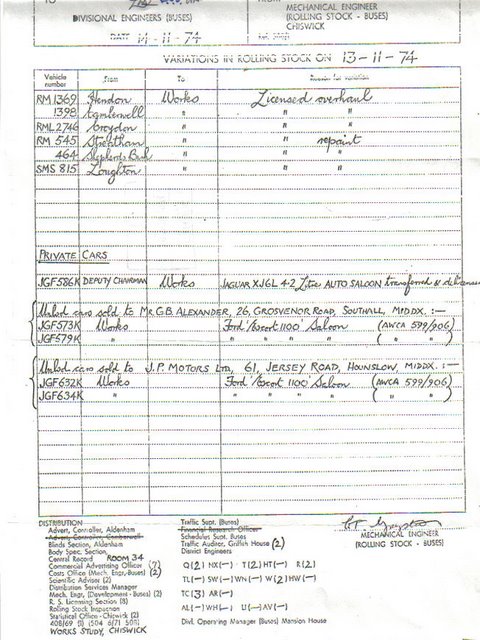 DIVISIONAL ENGINEERS (BUSES)
MECHANICAL ENGINEER
(ROLLING STOCK - BUSES)
CHISWICK
DATE 14-11-74
VARIATIONS IN ROLLING STOCK ON 13-11-74
Vehicle number From To Reason for variation
RM 1369 Hendon Works Licensed overhaul
1398 Camberwell " " "
RML 2746 Croydon " " "
RM 545 Streatham " " repaint
464 Shepherds Bush " " "
SMS 815 Loughton " " "
PRIVATE CARS
JGF586K DEPUTY CHAIRMAN Works JAGUAR XJ6L 4·2 Litre AUTO SALOON transferred &
cars sold to MR. G.B. ALEXANDER, 26, GROSVENOR ROAD, SOUTHALL, MIDDX. :—
JGF573K Works Ford 'Escort 1100' Saloon (AWCA 599/906)
JGF579K " " " " " ( " " )
cars sold to J.P. MOTORS LTD, 61, JERSEY ROAD, HOUNSLOW, MIDDX. :—
JGF632K Works Ford 'Escort 1100' Saloon (AWCA 599/906)
JGF634K " " " " ( " " )
MECHANICAL ENGINEER
(ROLLING STOCK - BUSES)
DISTRIBUTION
Advert, Controller, Aldenham
Advert, Controller, Camberwell
Blinds Section, Aldenham
Body Spec. Section,
Central Record ROOM 34
Commercial Advertising Officer
Costs Office (Mech. Engr.-Buses) (2)
Scientific Adviser (2)
Distribution Services Manager
Mech. Engr. (Development - Buses) (2)
R. S. Licensing Section (8)
Rolling Stock Inspection
Statistical Office - Chiswick (2)
WORKS STUDY, CHISWICK
Traffic Supt. (Buses)
Financial Research Officer
Schedules Supt. Buses
Traffic Auditor, Griffith House (2)
District Engineers
Q(2) NX(—) T(2) HT(—) R(2)
TL(—) SW(—) WN(—) W(2) HW(—)
TC(3) AR(—)
AL(—) WH(—) U(—) AV(—)
Divl. Operating Manager (Buses) Mansion House